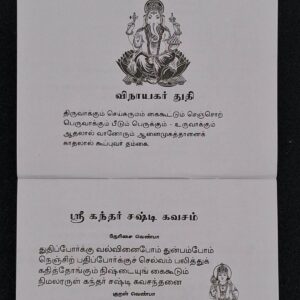 விநாயகர் துதி
திருவாக்கும் செய்கருமம் கைகூட்டும் செஞ்சொற்
பெருவாக்கும் பீடும் பெருக்கும் - உருவாக்கும்
ஆதலால் வானோரும் ஆனைமுகத்தானைக்
காதலால் கூப்புவர் தம்கை.
ஸ்ரீ கந்தர் சஷ்டி கவசம்
நேரிசை வெண்பா
துதிப்போர்க்கு வல்வினைபோம் துன்பம்போம்
நெஞ்சிற் பதிப்போர்க்குச் செல்வம் பலித்துக்
கதித்தோங்கும் நிஷ்டையுங் கைகூடும்
நிமலரருள் கந்தர் சஷ்டி கவசந்தனை
குறள் வெண்பா